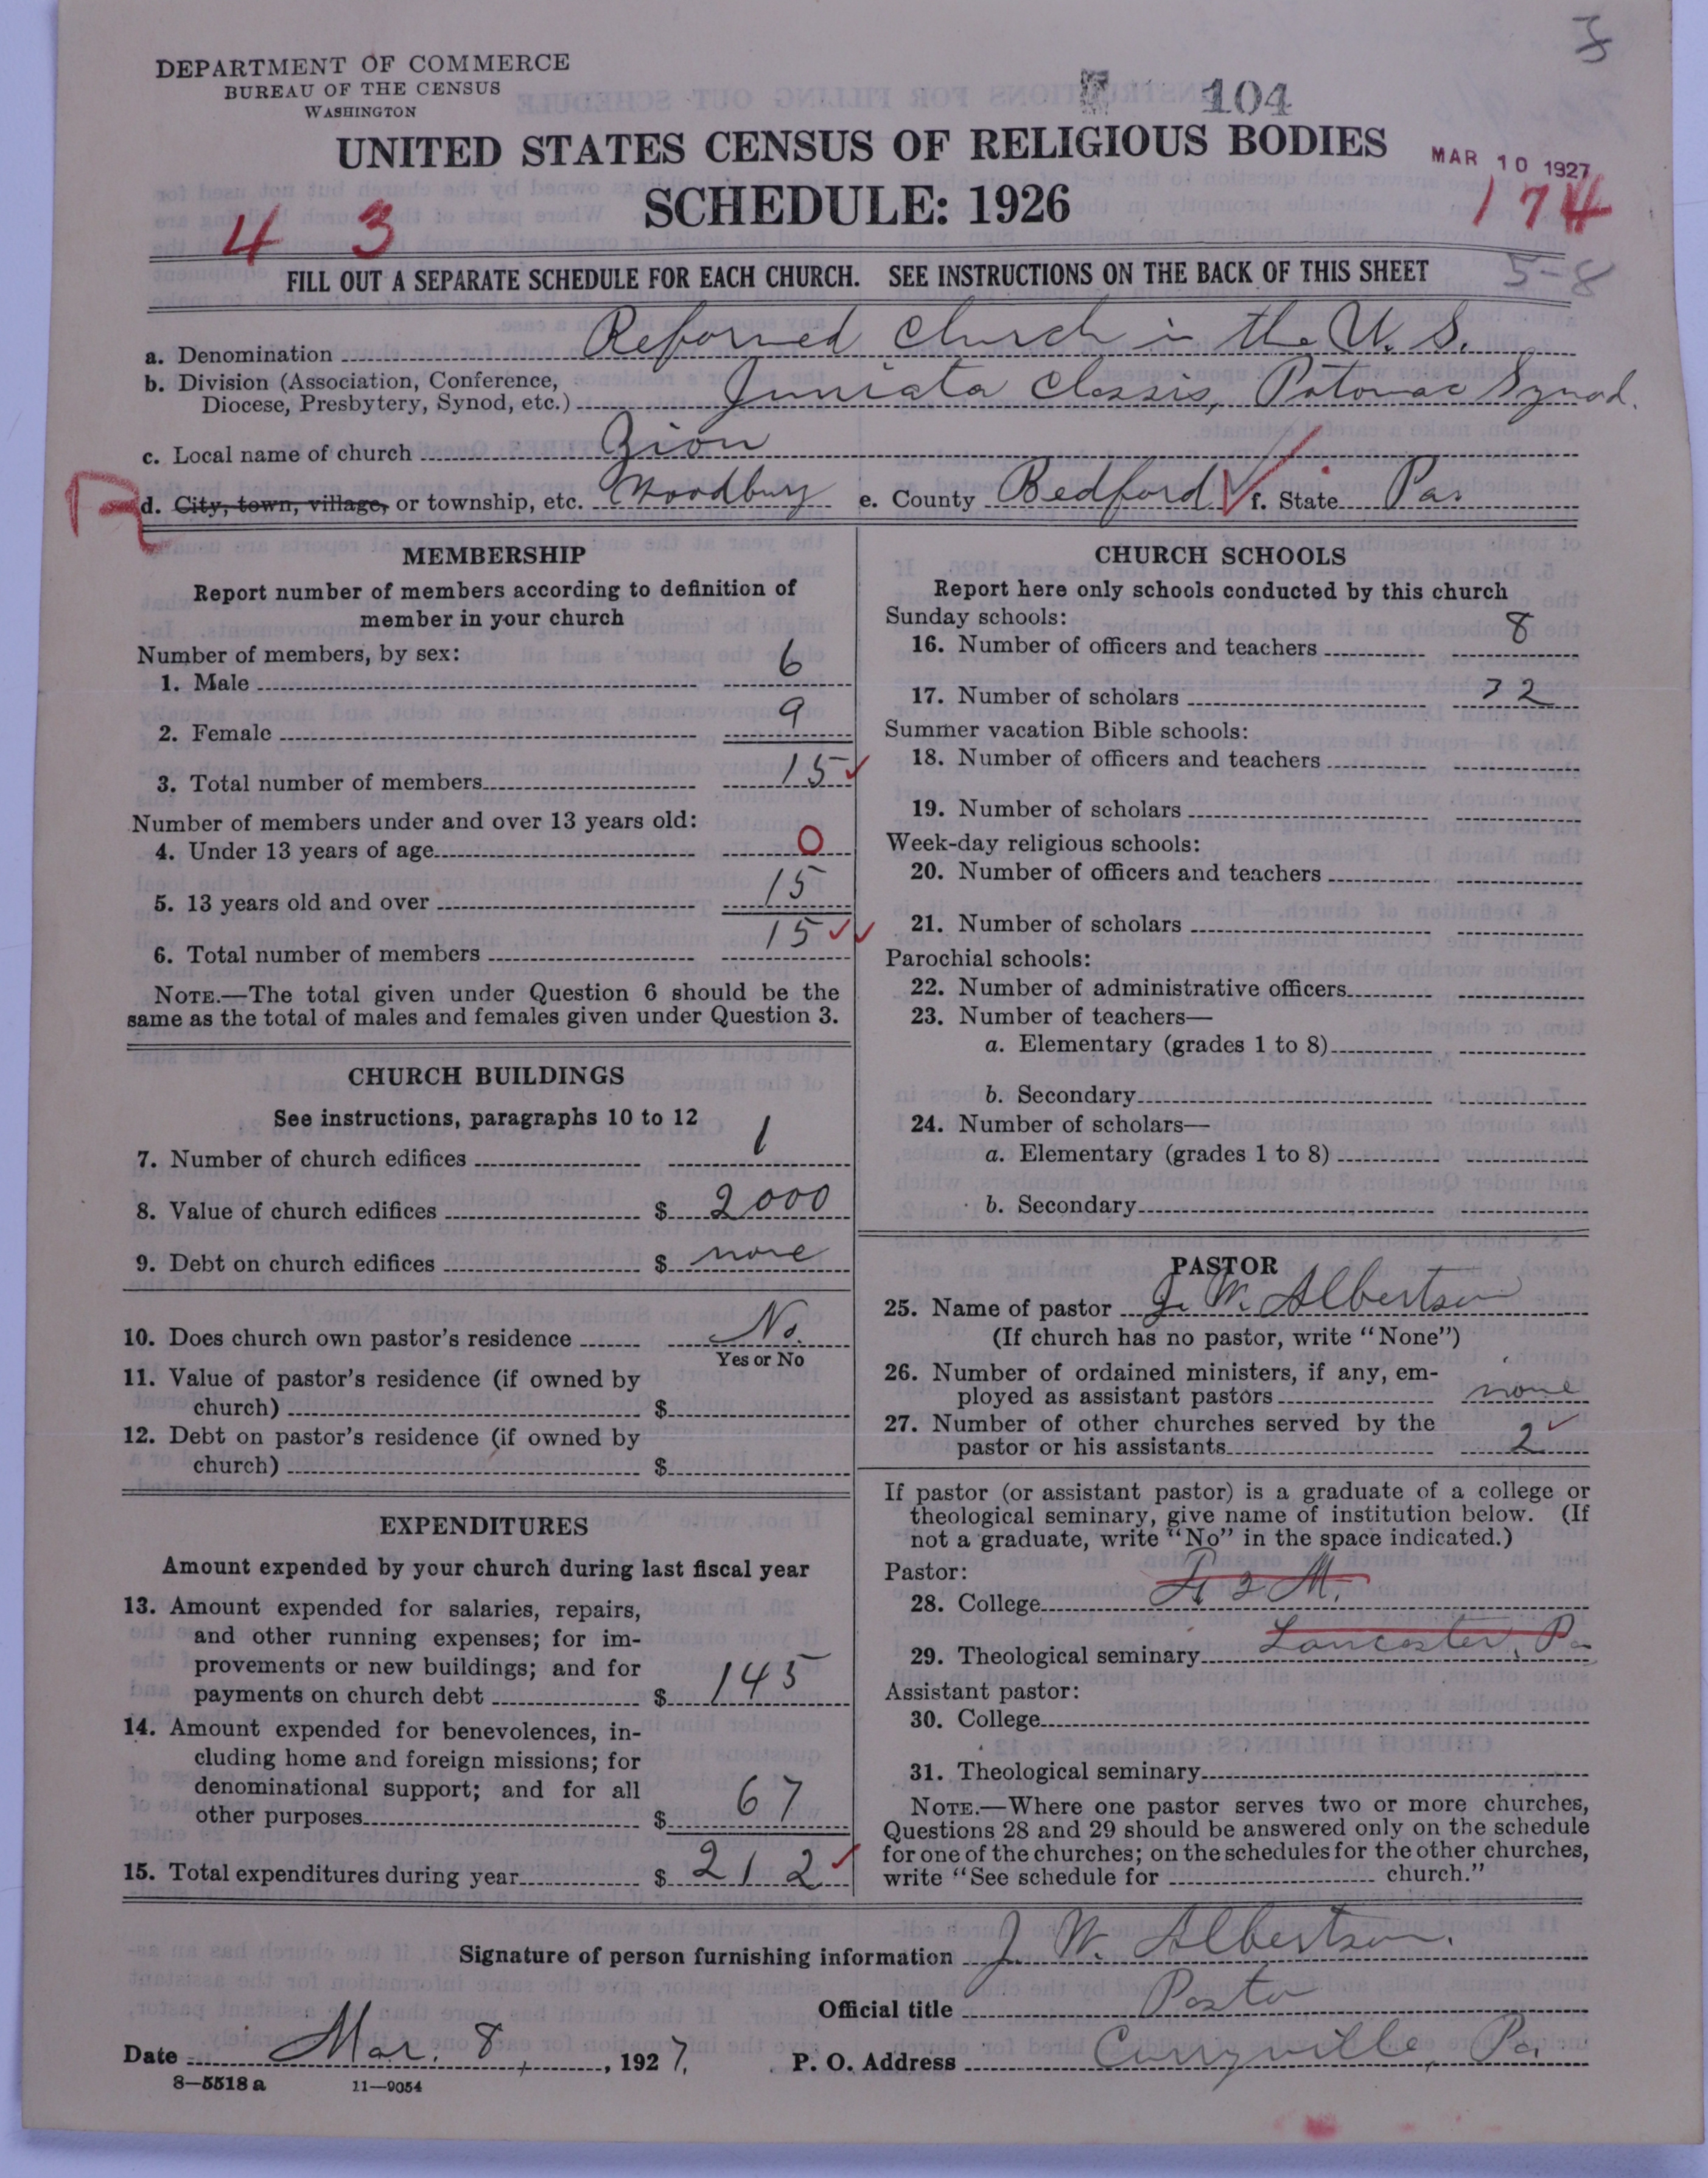 DEPARTMENT OF COMMERCE
BUREAU OF THE CENSUS
WASHINGTON
104
UNITED STATES CENSUS OF RELIGIOUS BODIES
MAR 10 1927
SCHEDULE: 1926
4 3
174
FILL OUT A SEPARATE SCHEDULE FOR EACH CHURCH. SEE INSTRUCTIONS ON THE BACK OF THIS SHEET
5-8
a. Denomination Reformed Church in the U. S.
b. Division (Association, Conference, Diocese, Presbytery, Synod, etc.) Juniata Classis, Potomac Synod.
c. Local name of church Zion
d. City, town, village, or township, etc. Woodbury e. County Bedford f. State Pa.
MEMBERSHIP
Report number of members according to definition of
member in your church
Number of members, by sex:
1. Male 6
2. Female 9
3. Total number of members 15
Number of members under and over 13 years old:
4. Under 13 years of age 0
5. 13 years old and over 15
6. Total number of members 15
NOTE.—The total given under Question 6 should be the
same as the total of males and females given under Question 3.
CHURCH BUILDINGS
See instructions, paragraphs 10 to 12
7. Number of church edifices 1
8. Value of church edifices $ 2000
9. Debt on church edifices $ none
10. Does church own pastor's residence No.
Yes or No
11. Value of pastor's residence (if owned by
church) $
12. Debt on pastor's residence (if owned by
church) $
EXPENDITURES
Amount expended by your church during last fiscal year
13. Amount expended for salaries, repairs,
and other running expenses; for im-
provements or new buildings; and for
payments on church debt $ 145
14. Amount expended for benevolences, in-
cluding home and foreign missions; for
denominational support; and for all
other purposes $ 67
15. Total expenditures during year $ 212
CHURCH SCHOOLS
Report here only schools conducted by this church
Sunday schools:
16. Number of officers and teachers 8
17. Number of scholars 72
Summer vacation Bible schools:
18. Number of officers and teachers
19. Number of scholars
Week-day religious schools:
20. Number of officers and teachers
21. Number of scholars
Parochial schools:
22. Number of administrative officers
23. Number of teachers—
a. Elementary (grades 1 to 8)
b. Secondary
24. Number of scholars—
a. Elementary (grades 1 to 8)
b. Secondary
PASTOR
25. Name of pastor J. W. Albertson
(If church has no pastor, write "None")
26. Number of ordained ministers, if any, em-
ployed as assistant pastors none
27. Number of other churches served by the
pastor or his assistants 2
If pastor (or assistant pastor) is a graduate of a college or
theological seminary, give name of institution below. (If
not a graduate, write "No" in the space indicated.)
Pastor:
28. College F & M.
29. Theological seminary Lancaster, Pa
Assistant pastor:
30. College
31. Theological seminary
NOTE.—Where one pastor serves two or more churches,
Questions 28 and 29 should be answered only on the schedule
for one of the churches; on the schedules for the other churches,
write "See schedule for church."
Signature of person furnishing information J. W. Albertson.
Official title Pastor
Date Mar. 8, 1927. P. O. Address Curryville, Pa.
8—5518 a 11—9054